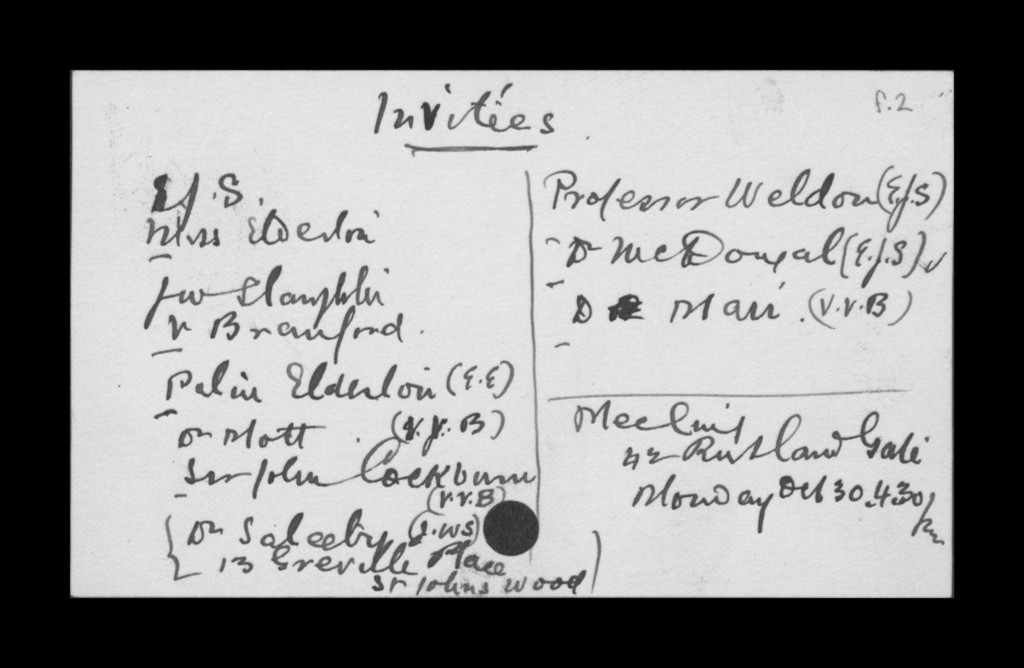 Invitées
f.2
E.J.S.
Miss Elderton
J W Slaughter
V Branford
Palin Elderton (E.E)
Dr Mott. (V.V.B)
Sir John Cockburn
(V.V.B)
Dr Saleeby (J.W.S)
13 Greville Place
St Johns Wood
Professor Weldon (E.J.S)
Dr McDougal (E.J.S)
D Marr. (V.V.B)
Meeting
42 Rutland Gate
Monday Oct 30. 4.30